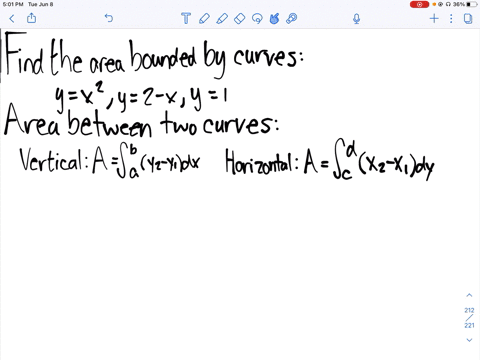 5:01 PM Tue Jun 8
36%
Find the area bounded by curves:
y=x², y=2-x, y=1
Area between two curves:
Vertical: A=∫ₐᵇ(y₂-y₁)dx Horizontal: A=∫꜀ᵈ(x₂-x₁)dy
212
/
221